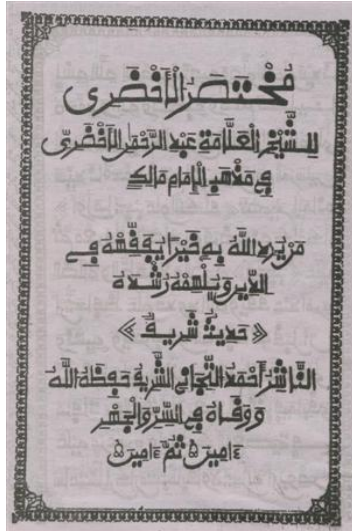 مُخْتَصَرُ الْأَخْضَرِى
لِلشَّيْخِ الْعَلَّامَةِ عَبْدِ الرَّحْمَنِ الْأَخْضَرِىِّ
فِي مَذْهَبِ الْإِمَامِ مَالِكٍ
مَنْ يُرِدِ اللَّهُ بِهِ خَيْرًا يُفَقِّهْهُ فِي
الدِّينِ وَيُلْهِمْهُ رُشْدَهُ
« حَدِيثٌ شَرِيفٌ »
النَّاشِرُ أَحْمَدُ التِّجَانِي الشَّرِيفُ حَفِظَهُ اللَّهُ
وَوَقَاهُ فِي السِّرِّ وَالْجَهْرِ
ءَامِين ثُمَّ ءَامِين